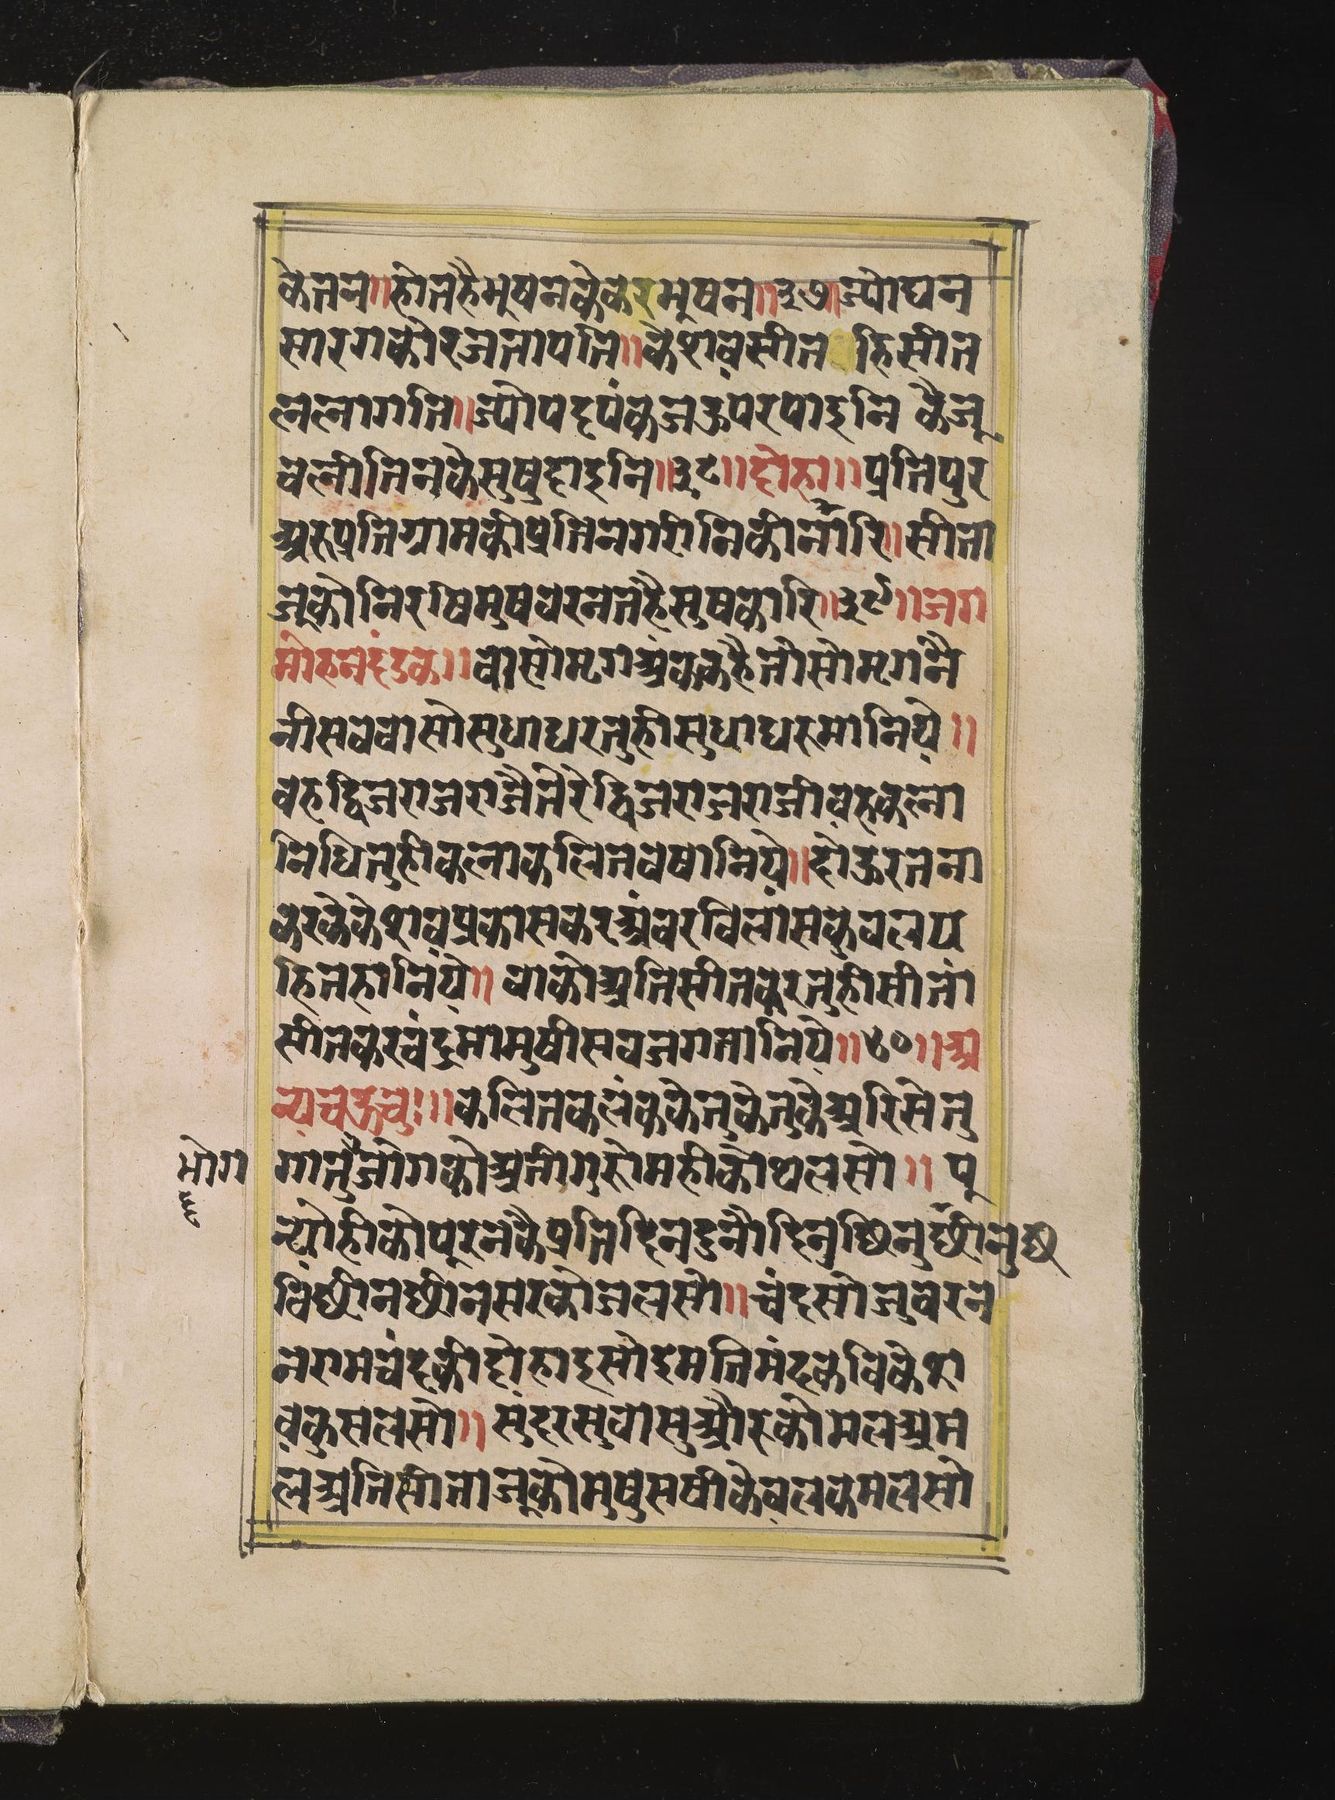 केतन॥होतहैमूषनकेकरमूषन॥३७॥ज्योघन
सारगकोरजतापति॥केशवसीत हिसीत
ललागति॥ज्योपदपंकजऊपरपाइनि कैजू
वेलीतिनकेसुषुदाइनि॥३८॥दोहा॥प्रतिपुर
अरुप्रतिग्रामकीप्रतिनगरीनिकीनारि॥सीता
जूकोनिरषिमुषवरनतहैसुषकारि॥३९॥जग
मोहनदंडक॥वासोमृगअंककहैतोसोमृगनै
नीसववासोसुधाधरतुहीसुधाधरमानिये॥
वहद्विजराजराजैतेरेद्विजराजराजीवहकला
निधितुहीकलाकलितवषानिये॥दोऊरतना
करकेकेशवप्रकासकरअंवरविलासकुवलय
हितहानिये॥ वाकोअतिसीतकरतुहीसीता
सीतकरचंद्रमामुषीसवजगजानिये॥४०॥अ
न्यचऊचुः॥कलितकलंककेतुकेतुकैअरिसेतु
गातुजोगकोअतीगुरोमहीकोथलसो॥ पू
भोग
न्योहीकोपूरनकैप्रतिदिनदुनोदिनुछिनुछीनुछ
विछीनछीनसरकोजलसो॥चंदसोजुवरन
तरामचंदकीदोहाइसोइमतिमंदकविकेश
वकुसलसो॥ सुंदरसुवासुऔरुकोमलअम
लअतिसीताजूकोमुषुसषीकेवलकमलसो